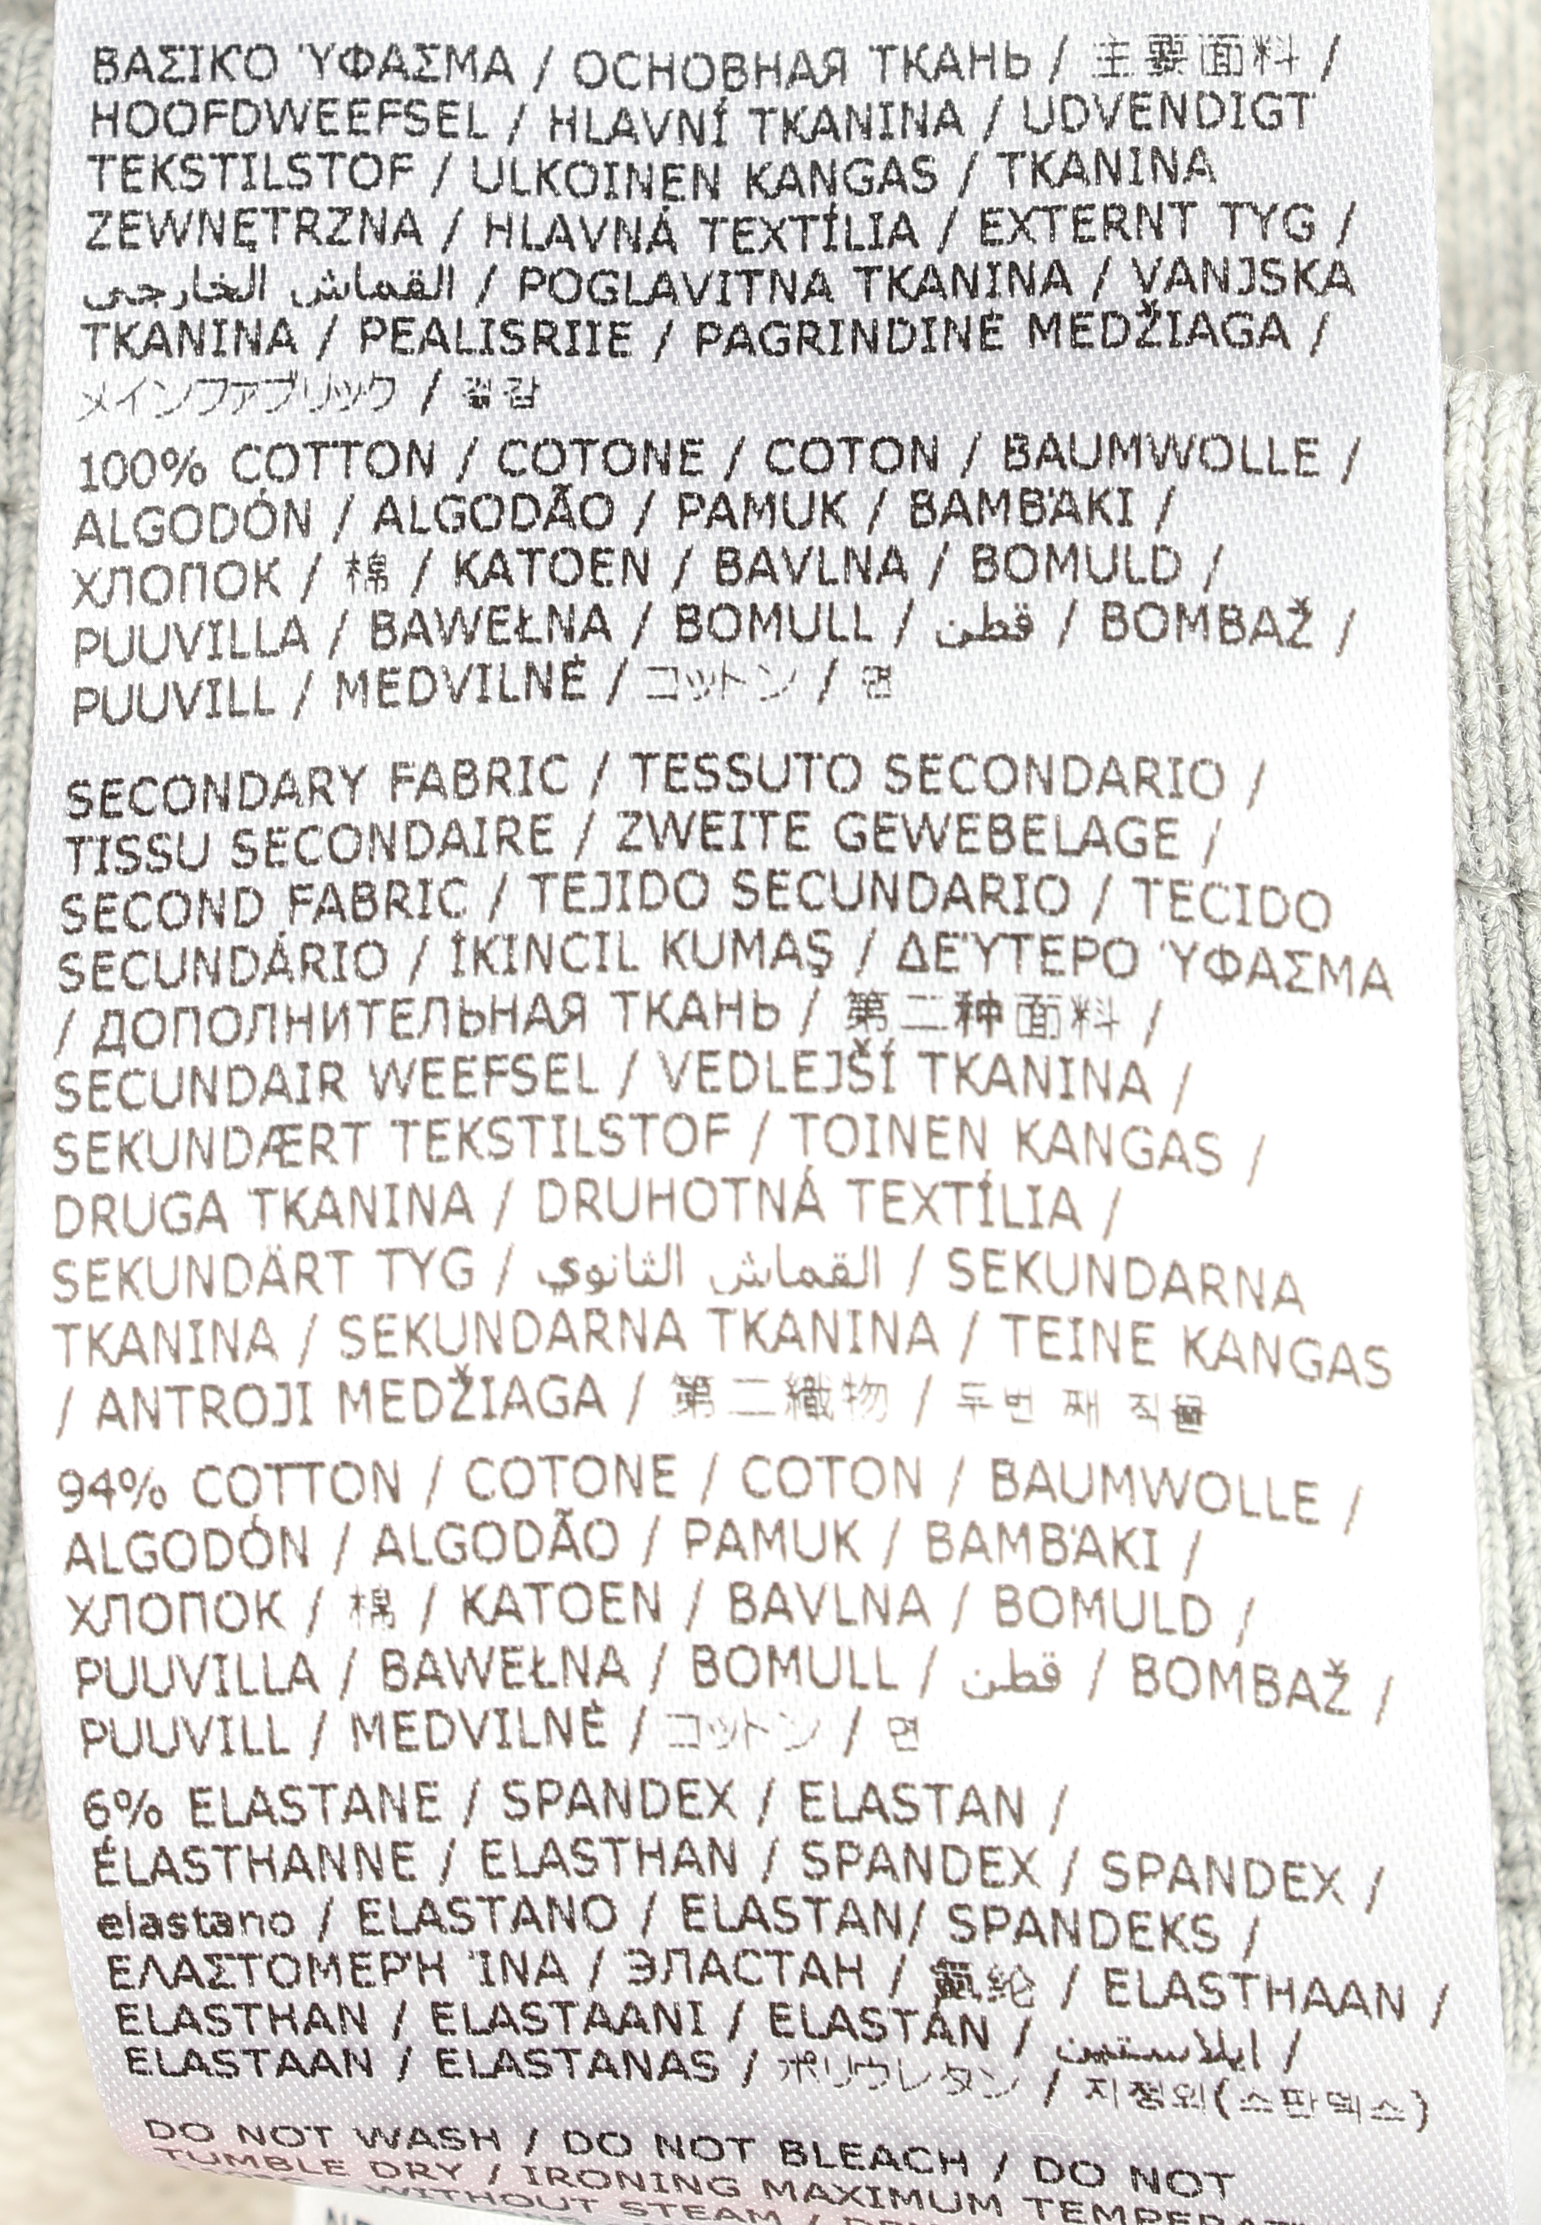 ΒΑΣΙΚΌ ΎΦΑΣΜΑ / ОСНОВНАЯ ТКАНЬ / 主要面料 /
HOOFDWEEFSEL / HLAVNÍ TKANINA / UDVENDIGT
TEKSTILSTOF / ULKOINEN KANGAS / TKANINA
ZEWNĘTRZNA / HLAVNÁ TEXTÍLIA / EXTERNT TYG /
القماش الخارجى / POGLAVITNA TKANINA / VANJSKA
TKANINA / PEALISRIIE / PAGRINDINĖ MEDŽIAGA /
メインファブリック / 겉감
100% COTTON / COTONE / COTON / BAUMWOLLE /
ALGODÓN / ALGODÃO / PAMUK / ΒΑΜΒΆΚΙ /
ХЛОПОК / 棉 / KATOEN / BAVLNA / BOMULD /
PUUVILLA / BAWEŁNA / BOMULL / قطن / BOMBAŽ /
PUUVILL / MEDVILNĖ / コットン / 면
SECONDARY FABRIC / TESSUTO SECONDARIO /
TISSU SECONDAIRE / ZWEITE GEWEBELAGE /
SECOND FABRIC / TEJIDO SECUNDARIO / TECIDO
SECUNDÁRIO / İKINCIL KUMAŞ / ΔΕΎΤΕΡΟ ΎΦΑΣΜΑ
/ ДОПОЛНИТЕЛЬНАЯ ТКАНЬ / 第二种面料 /
SECUNDAIR WEEFSEL / VEDLEJŠÍ TKANINA /
SEKUNDÆRT TEKSTILSTOF / TOINEN KANGAS /
DRUGA TKANINA / DRUHOTNÁ TEXTÍLIA /
SEKUNDÄRT TYG / القماش الثانوي / SEKUNDARNA
TKANINA / SEKUNDARNA TKANINA / TEINE KANGAS
/ ANTROJI MEDŽIAGA / 第二織物 / 두번 째 직물
94% COTTON / COTONE / COTON / BAUMWOLLE /
ALGODÓN / ALGODÃO / PAMUK / ΒΑΜΒΆΚΙ /
ХЛОПОК / 棉 / KATOEN / BAVLNA / BOMULD /
PUUVILLA / BAWEŁNA / BOMULL / قطن / BOMBAŽ /
PUUVILL / MEDVILNĖ / コットン / 면
6% ELASTANE / SPANDEX / ELASTAN /
ÉLASTHANNE / ELASTHAN / SPANDEX / SPANDEX /
elastano / ELASTANO / ELASTAN/ SPANDEKS /
ΕΛΑΣΤΟΜΕΡΉ ΊΝΑ / ЭЛАСТАН / 氨纶 / ELASTHAAN /
ELASTHAN / ELASTAANI / ELASTÁN / ايلاستين /
ELASTAAN / ELASTANAS / ポリウレタン / 지정외(스판덱스)
DO NOT WASH / DO NOT BLEACH / DO NOT
TUMBLE DRY / IRONING MAXIMUM
WITHOUT STEAM /